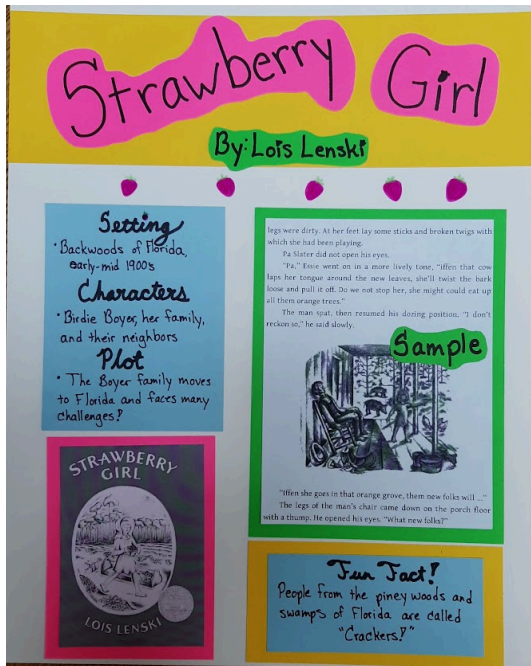 Strawberry Girl
By: Lois Lenski
Setting
• Backwoods of Florida,
early-mid 1900s
Characters
• Birdie Boyer, her family,
and their neighbors
Plot
• The Boyer family moves
to Florida and faces many
challenges!
STRAWBERRY
GIRL
LOIS LENSKI
legs were dirty. At her feet lay some sticks and broken twigs with
which she had been playing.
Pa Slater did not open his eyes.
"Pa," Essie went on in a more lively tone, "iffen that cow
laps her tongue around the new leaves, she'll twist the bark
loose and pull it off. Do we not stop her, she might could eat up
all them orange trees."
The man spat, then resumed his dozing position. "I don't
reckon so," he said slowly.
Sample
"Iffen she goes in that orange grove, them new folks will ..."
The legs of the man's chair came down on the porch floor
with a thump. He opened his eyes. "What new folks?"
Fun Fact!
People from the piney woods and
swamps of Florida are called
"Crackers!"